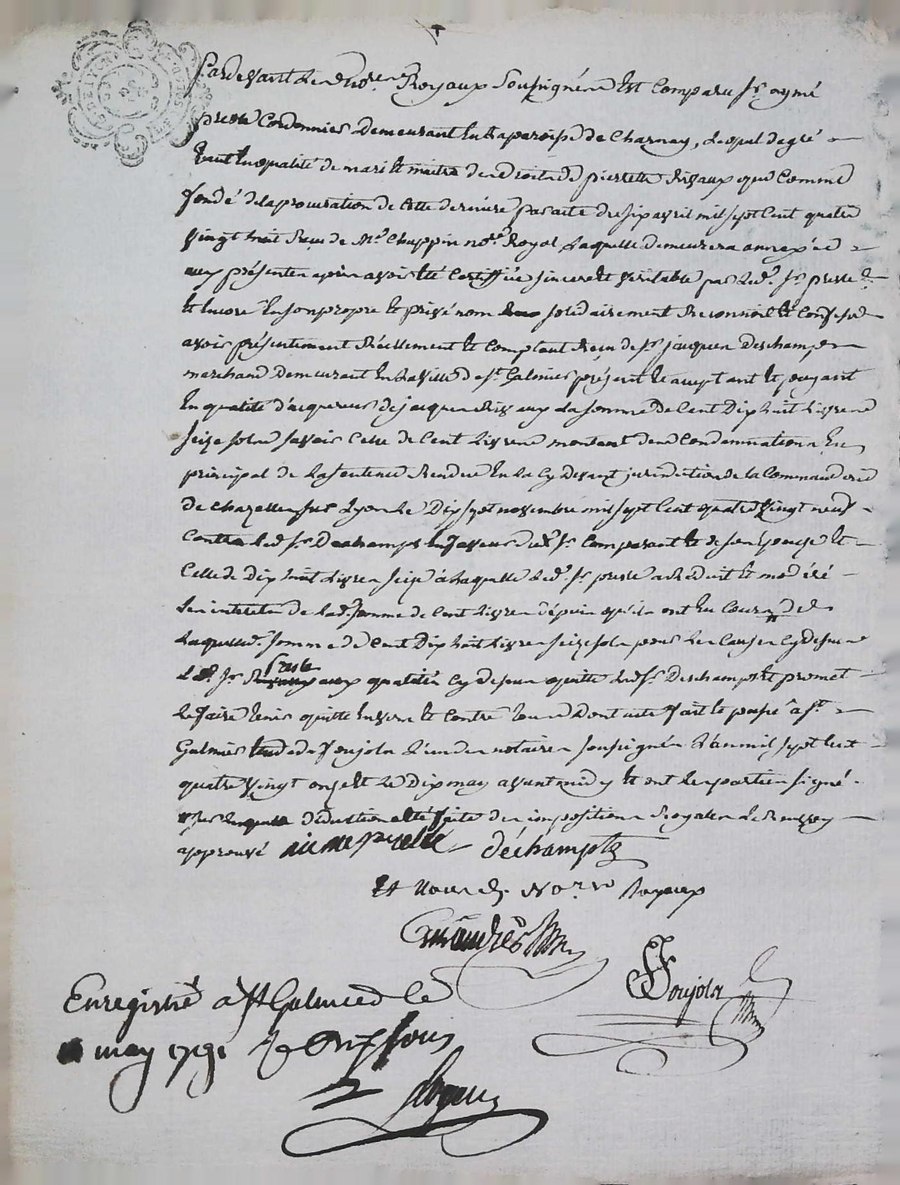 Pardevant les Nores Royaux Soussignés Est Comparu Sr aymé
preste Cordonnier Demeurant En la paroisse de Charnay, Lequel degré
Tant En qualité de mari et maitre des droits de pierrette Rivaux que Comme
fondé de la procuration de Cette derniere par acte du six avril mil sept Cent quatre
vingt huit Recu de Me Chuppin nore Royal Laquelle demeurera annexée
aux présentes après avoir été Certiffiée sincere et véritable par led. Sr preste
Et Encore En son propre et privé nom solidairement Reconnoit et Confesse
avoir présentement Réellement et Comptant Reçu de Sr jacques Deschamps
marchand Demeurant En la ville de St. Galmier présent et acceptant et payant
En qualité d'acquereur de jacques Rivaux La somme de Cent Dix huit Livres
seize sols savoir Celle de Cent Livres montant des Condamnations En
principal de la sentence Rendue En la Cy devant jurisdiction de la Commanderie
de Chazelles sur Lyon Le Dix sept novembre mil sept Cent quatre vingt neuf
Contre led. Sr. Deschamps En faveur dud. Sr. Comparant et de son Epouse et
Celle de Dix huit Livres seize à Laquelle led. Sr. preste a Réduit et modéré
Les interets de lad. somme de Cent Livres depuis qu'ils ont Eu Cours de
Laquelle d. somme de Cent Dix huit Livres seize sols pour les Causes Cy dessus
Led. Sr. preste aux qualités Cy dessus quitte led. Sr. Deschamps et promet
Le faire tenir quitte Envers et Contre tous Dont acte fait et passé à St.
Galmier Etude de Poujola L'un des notaires soussignés L'an mil sept Cent
quatre vingt onze et Le Dix may avant midy et ont les parties signé.
déduction été faite des impositions Royales
approuvé aimé preste déchamptz
Et Nous d. Nores Royaux
Poujola
Enregistré à St Galmier le
may 1791 sous